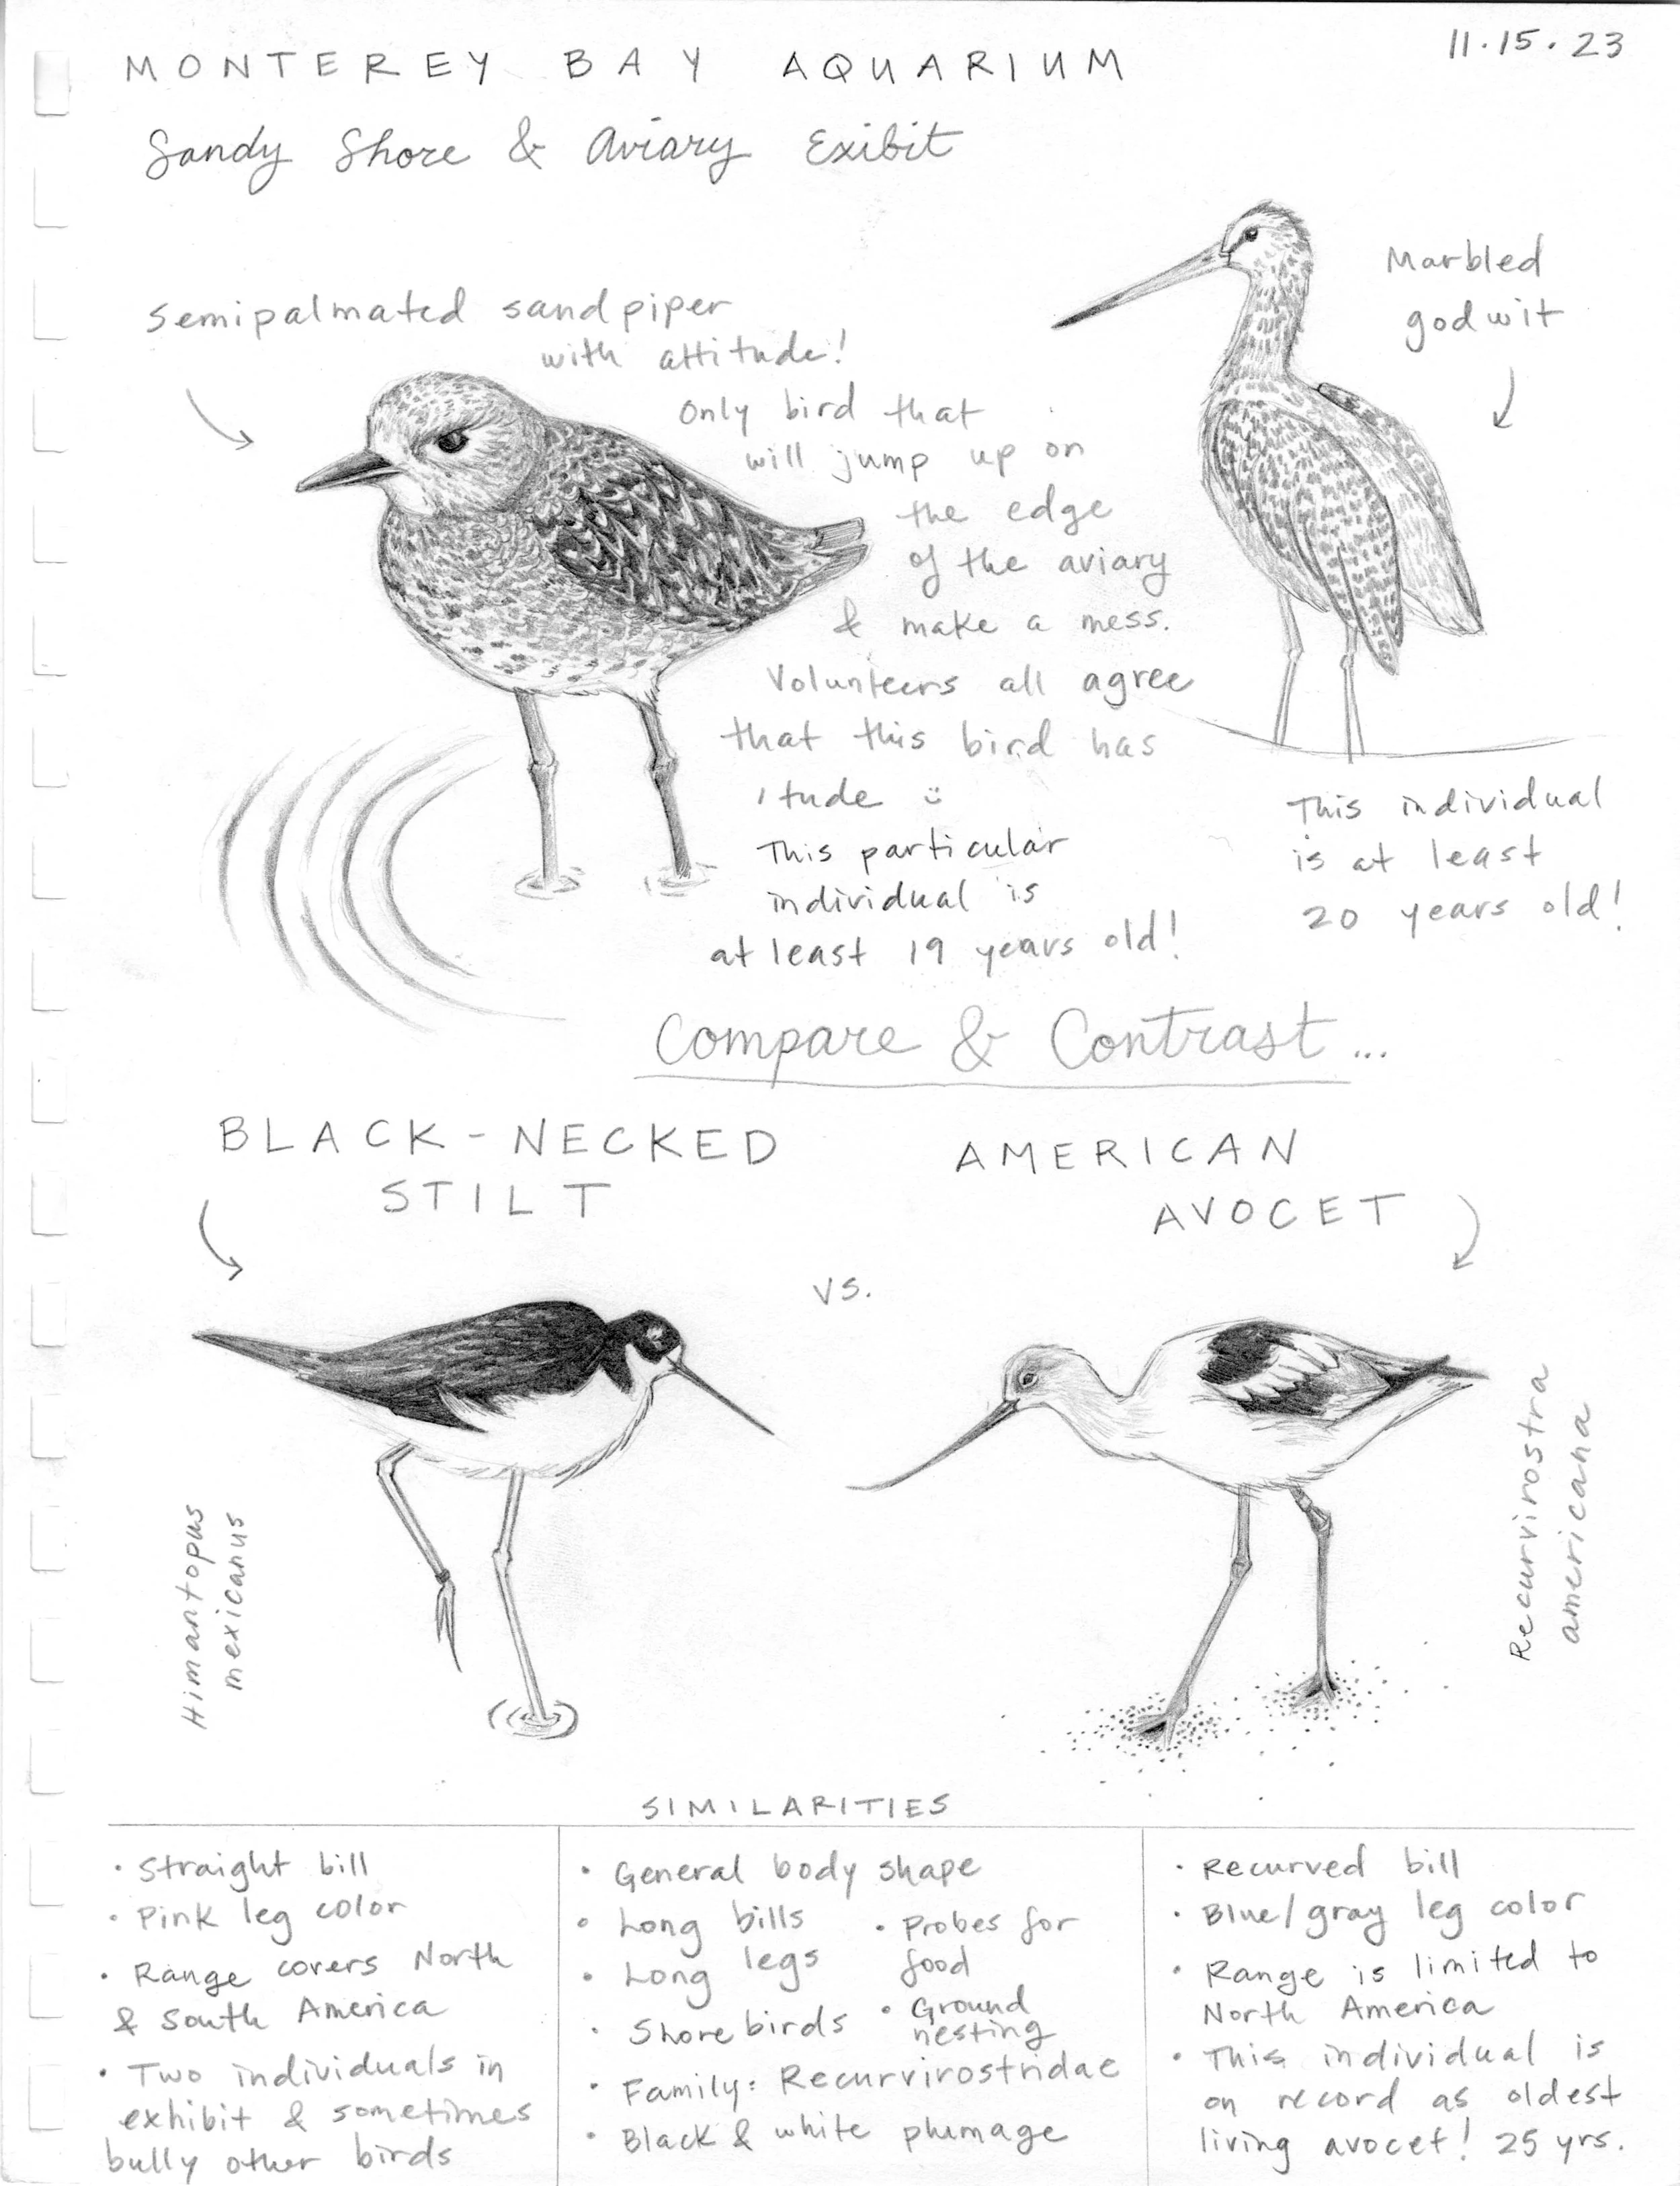 MONTEREY BAY AQUARIUM
11.15.23
Sandy Shore & Aviary Exibit
Semipalmated sandpiper
with attitude!
Only bird that
will jump up on
the edge
of the aviary
& make a mess.
Volunteers all agree
that this bird has
'tude :)
This particular
individual is
at least 19 years old!
Marbled
godwit
This individual
is at least
20 years old!
Compare & Contrast...
BLACK-NECKED
STILT
vs.
AMERICAN
AVOCET
Himantopus
mexicanus
Recurvirostra
americana
SIMILARITIES
• Straight bill
• Pink leg color
• Range covers North
& South America
• Two individuals in
exhibit & sometimes
bully other birds
• General body shape
• Long bills
• Long legs
• Shorebirds
• Probes for
food
• Ground
nesting
• Family: Recurvirostridae
• Black & white plumage
• Recurved bill
• Blue/gray leg color
• Range is limited to
North America
• This individual is
on record as oldest
living avocet! 25 yrs.